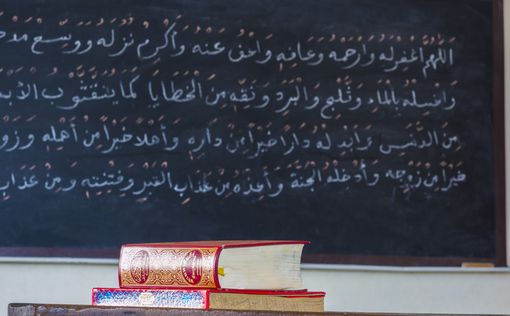 اللَّهُمَّ اغْفِرْ لَهُ وَارْحَمْهُ وَعَافِهِ وَاعْفُ عَنْهُ وَأَكْرِمْ نُزُلَهُ وَوَسِّعْ
وَاغْسِلْهُ بِالْمَاءِ وَثَلْجٍ وَالْبَرَدِ وَنَقِّهِ مِنَ الْخَطَايَا كَمَا يُنَقَّثُوبُ
مِنَ الدَّنَسِ وَابْدِلْهُ دَارًا خَيْرًا مِنْ دَارِهِ وَأَهْلًا خَيْرًا مِنْ أَهْلِهِ
خَيْرًا مِنْ زَوْجِهِ وَأَدْخِلْهُ الْجَنَّةَ وَأَعِذْهُ مِنْ عَذَابِ الْقَبْرِ وَفِتْنَتِهِ وَمِنْ عَذَابِ